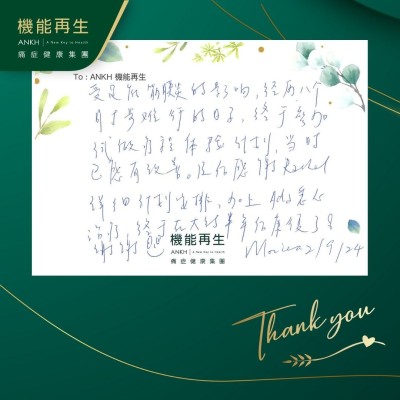 機能再生
ANKH | A New Key to Health
痛症健康集團
To : ANKH 機能再生
受足底筋膜炎的影响，经历八个
月寸步难行的日子，终于参加
试做疗程体验计划，当时
已感有改善。
感谢Rachel
详细计划安排，加上
治疗，终于在大约半年后康復了！
谢谢
Monica 2/9/24
機能再生
ANKH | A New Key to Health
痛症健康集團
Thank you